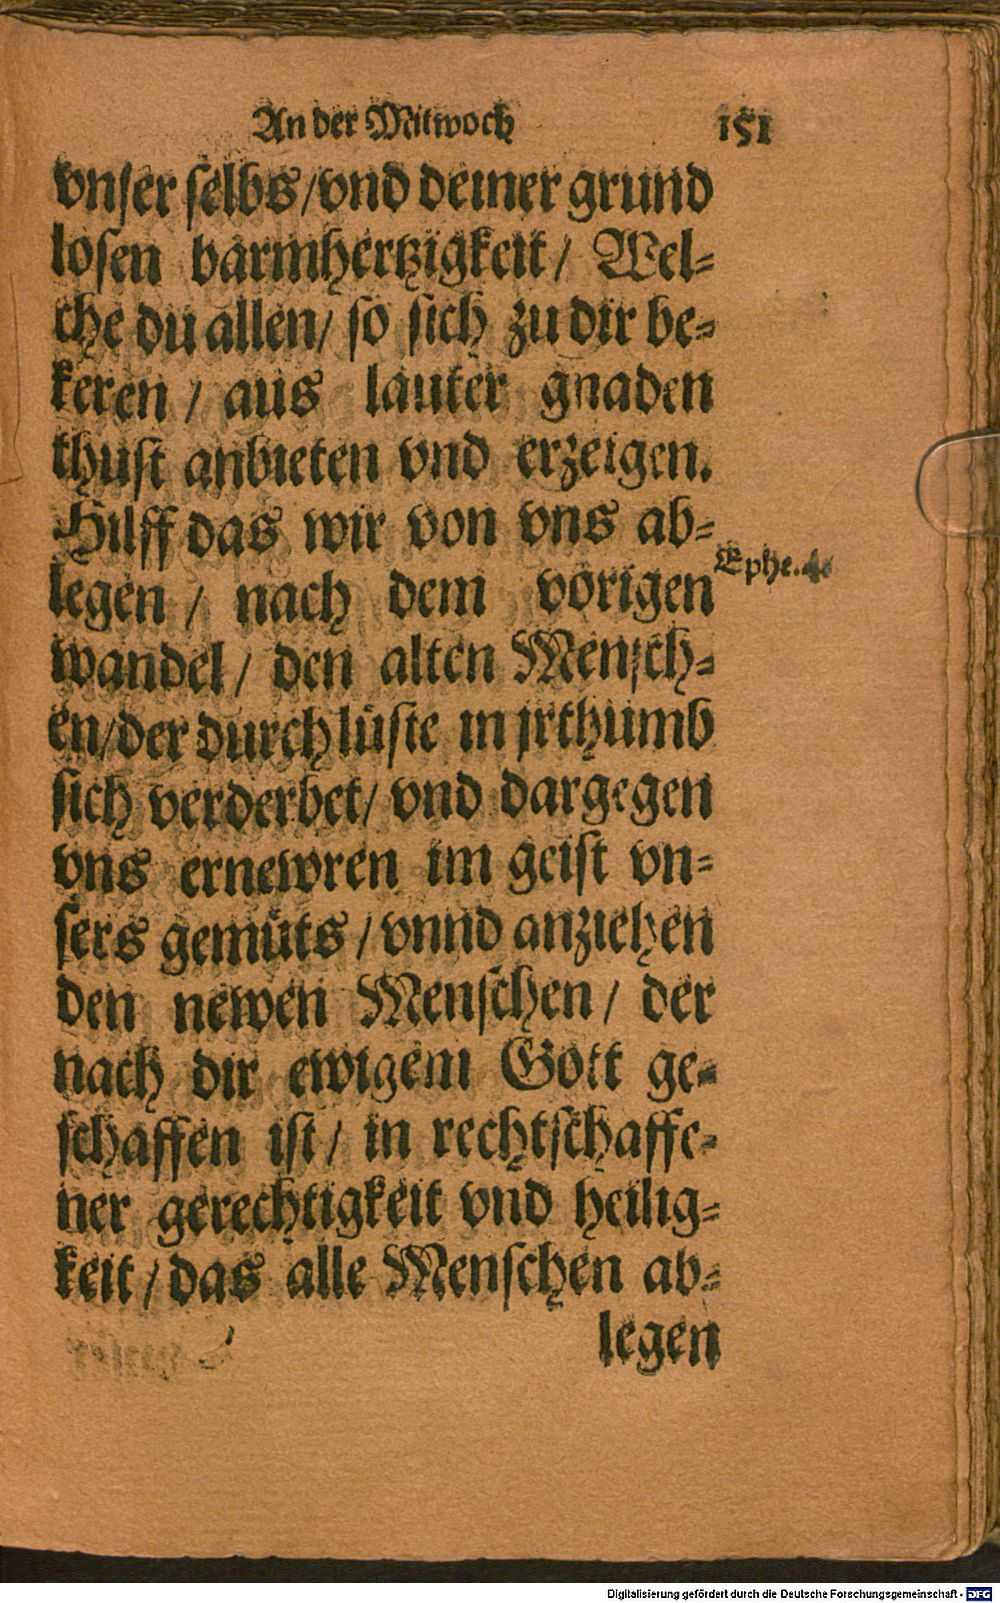 An der Mitwoch 151
vnser selbs/vnd deiner grund
losen barmhertzigkeit/ Wel-
che du allen/ so sich zu dir be-
keren / aus lauter gnaden
thust anbieten vnd erzeigen.
Hilff das wir von vns ab-
Ephe. 4.
legen / nach dem vorigen
wandel/ den alten Mensch-
en/der durch lüste in jrthumb
sich verderbet/ vnd dargegen
vns ernewren im geist vn-
sers gemüts /vnnd anziehen
den newen Menschen/ der
nach dir ewigem Gott ge-
schaffen ist/ in rechtschaffe-
ner gerechtigkeit vnd heilig-
keit/das alle Menschen ab-
legen
Digitalisierung gefördert durch die Deutsche Forschungsgemeinschaft - DFG